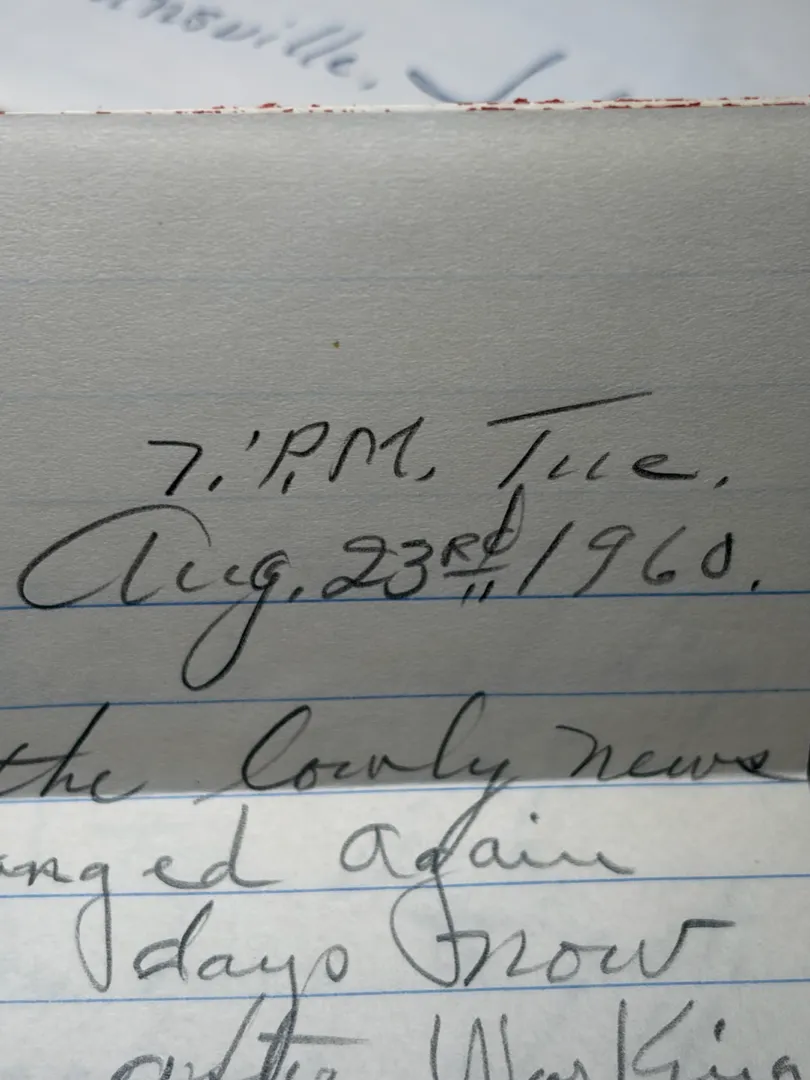 nsville,
7.'P.M. Tue.
Aug. 23RD 1960.
the lovely news
anged again
days now
after Working